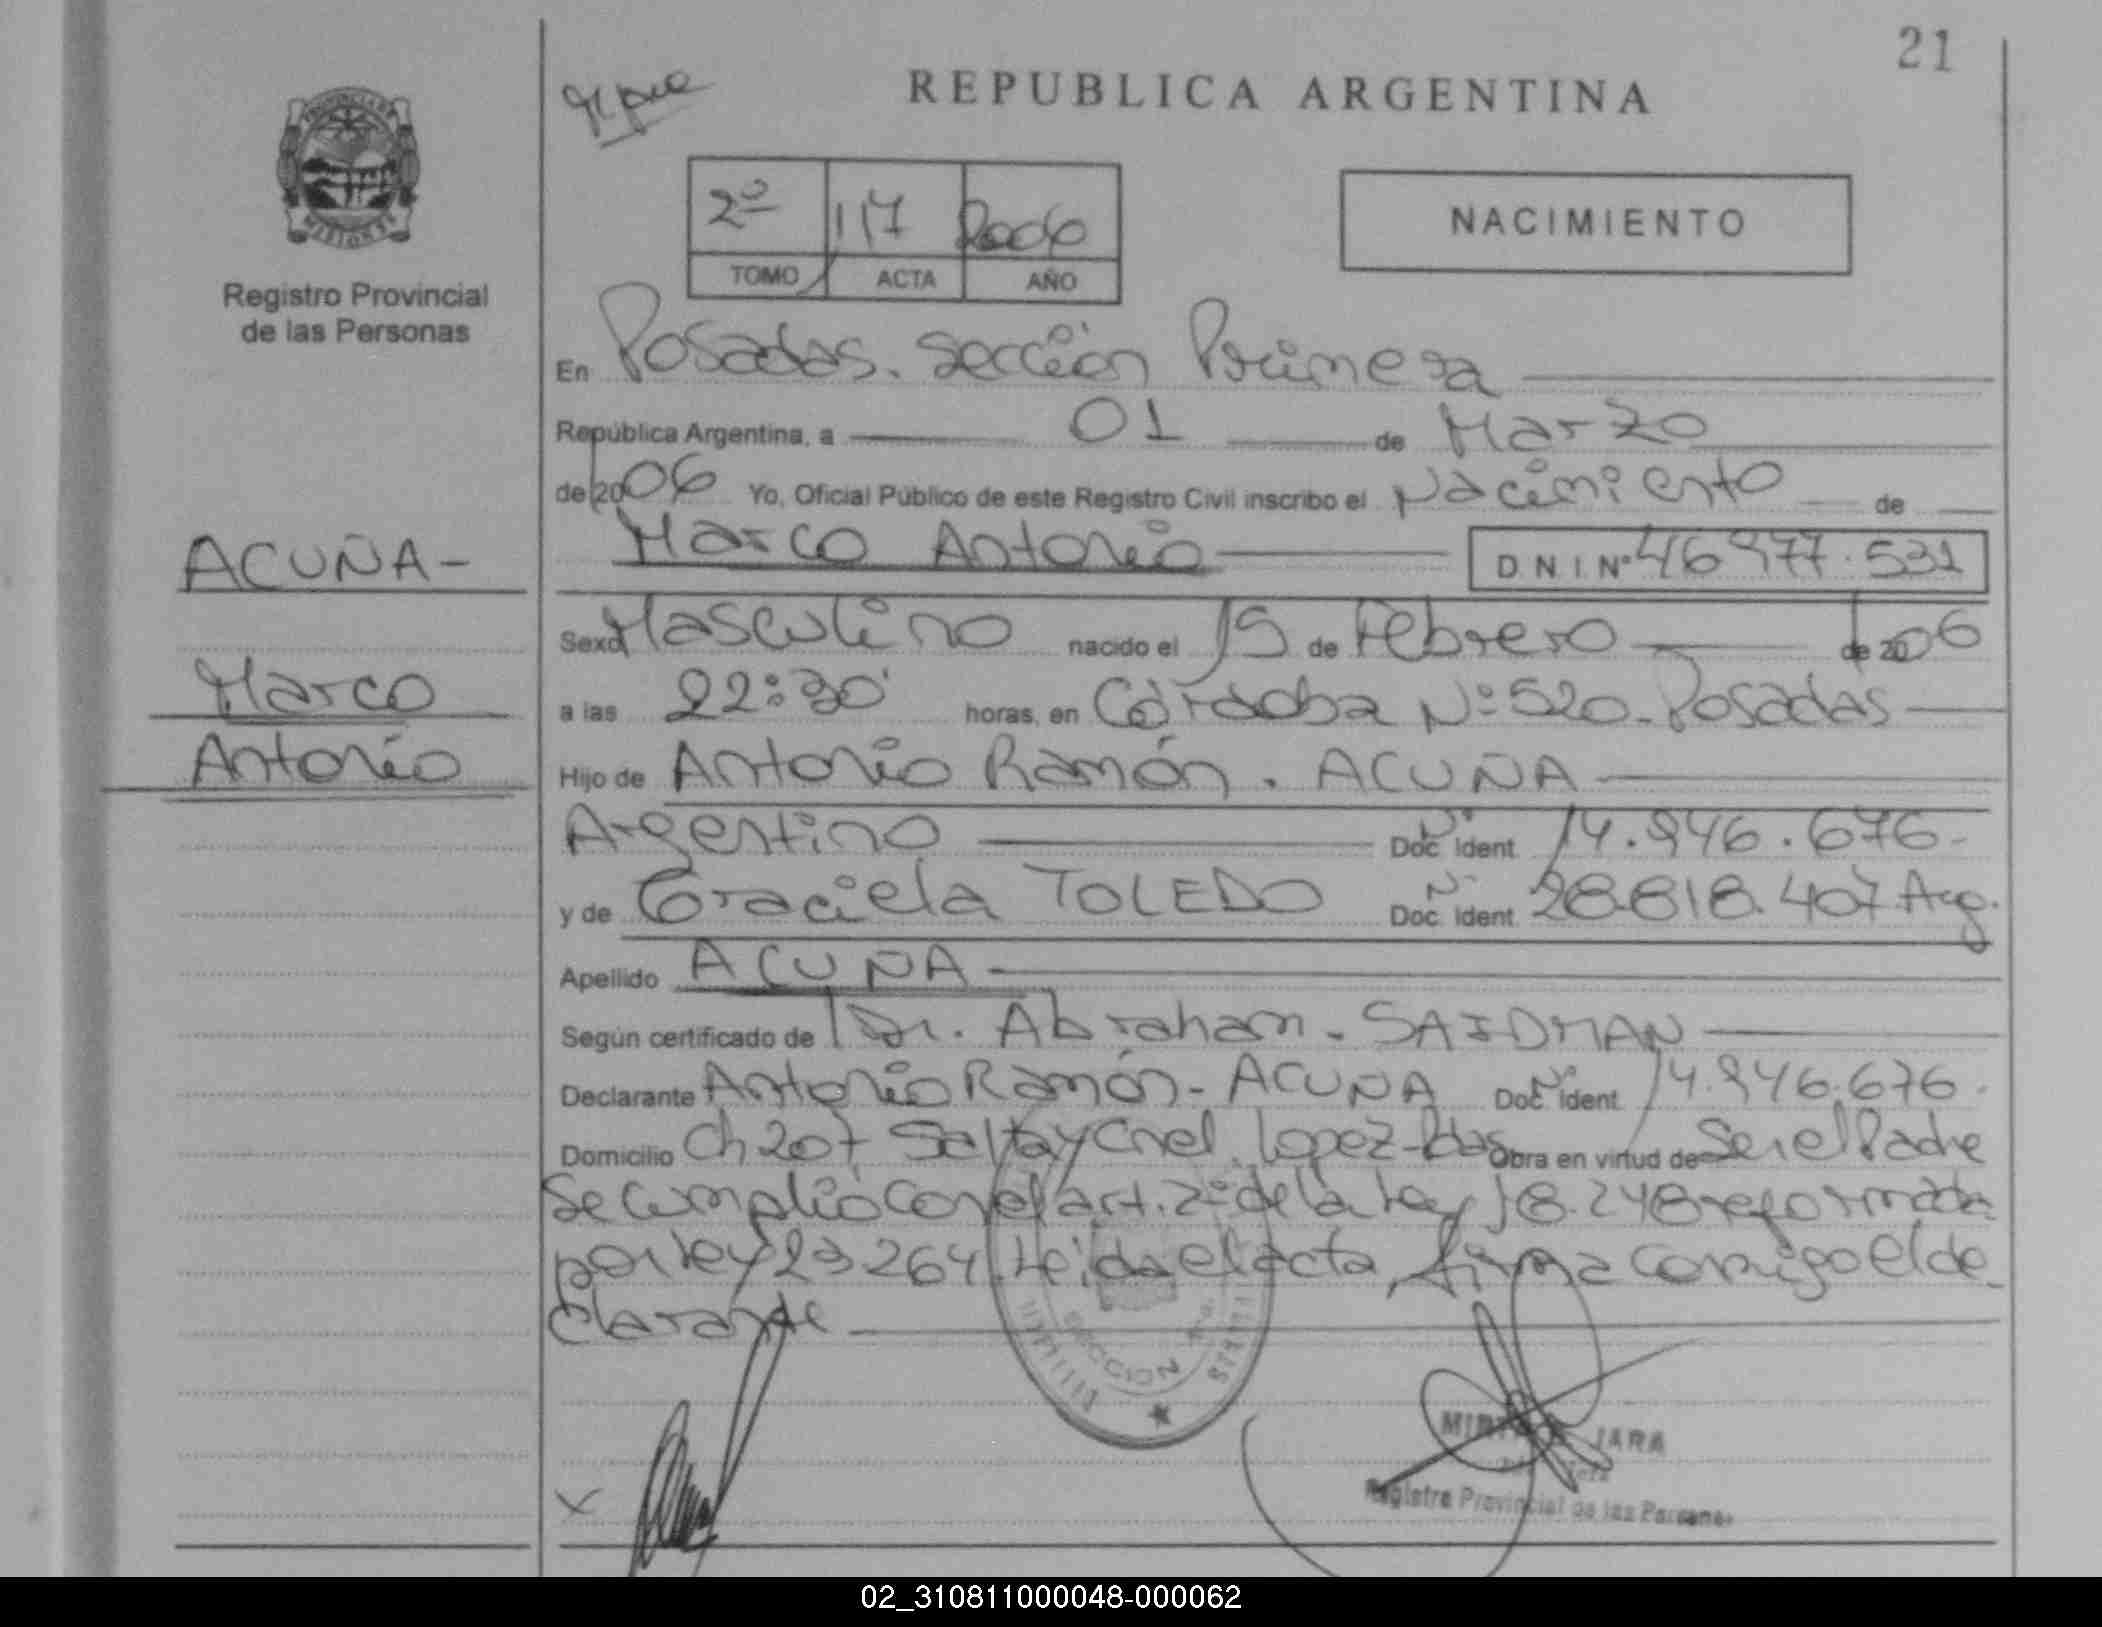 21
REPUBLICA ARGENTINA
2º 117 2006
TOMO ACTA AÑO
NACIMIENTO
Registro Provincial
de las Personas
En Posadas. Sección Primera
República Argentina, a 01 de Marzo
de 2006 Yo, Oficial Público de este Registro Civil inscribo el Nacimiento de
Marco Antonio D N I Nº 46 977.531
ACUÑA-
Marco
Antonio
Sexo Masculino nacido el 15 de Febrero de 2006
a las 22:30' horas, en Córdoba Nº 520 - Posadas
Hijo de Antonio Ramón. ACUÑA
Argentino Doc. Ident. Nº 14.946.676-
y de Graciela TOLEDO Doc. Ident. Nº 28.818.407 Arg.
Apellido ACUÑA
Según certificado de Dr. Abraham - SAIDMAN
Declarante Antonio Ramón - ACUÑA Doc. Ident. Nº 14.946.676.
Domicilio Ch 207 Salta y Cnel. Lopez - Pdas Obra en virtud de Ser el Padre
Se cumplió con el art. 2º de la Ley 18.248 reformada
por Ley 23264. Leída el acta, firma conmigo el de-
clarante
SECCION 1ra.
X
JARA
Registro Provincial de las Personas
02_310811000048-000062